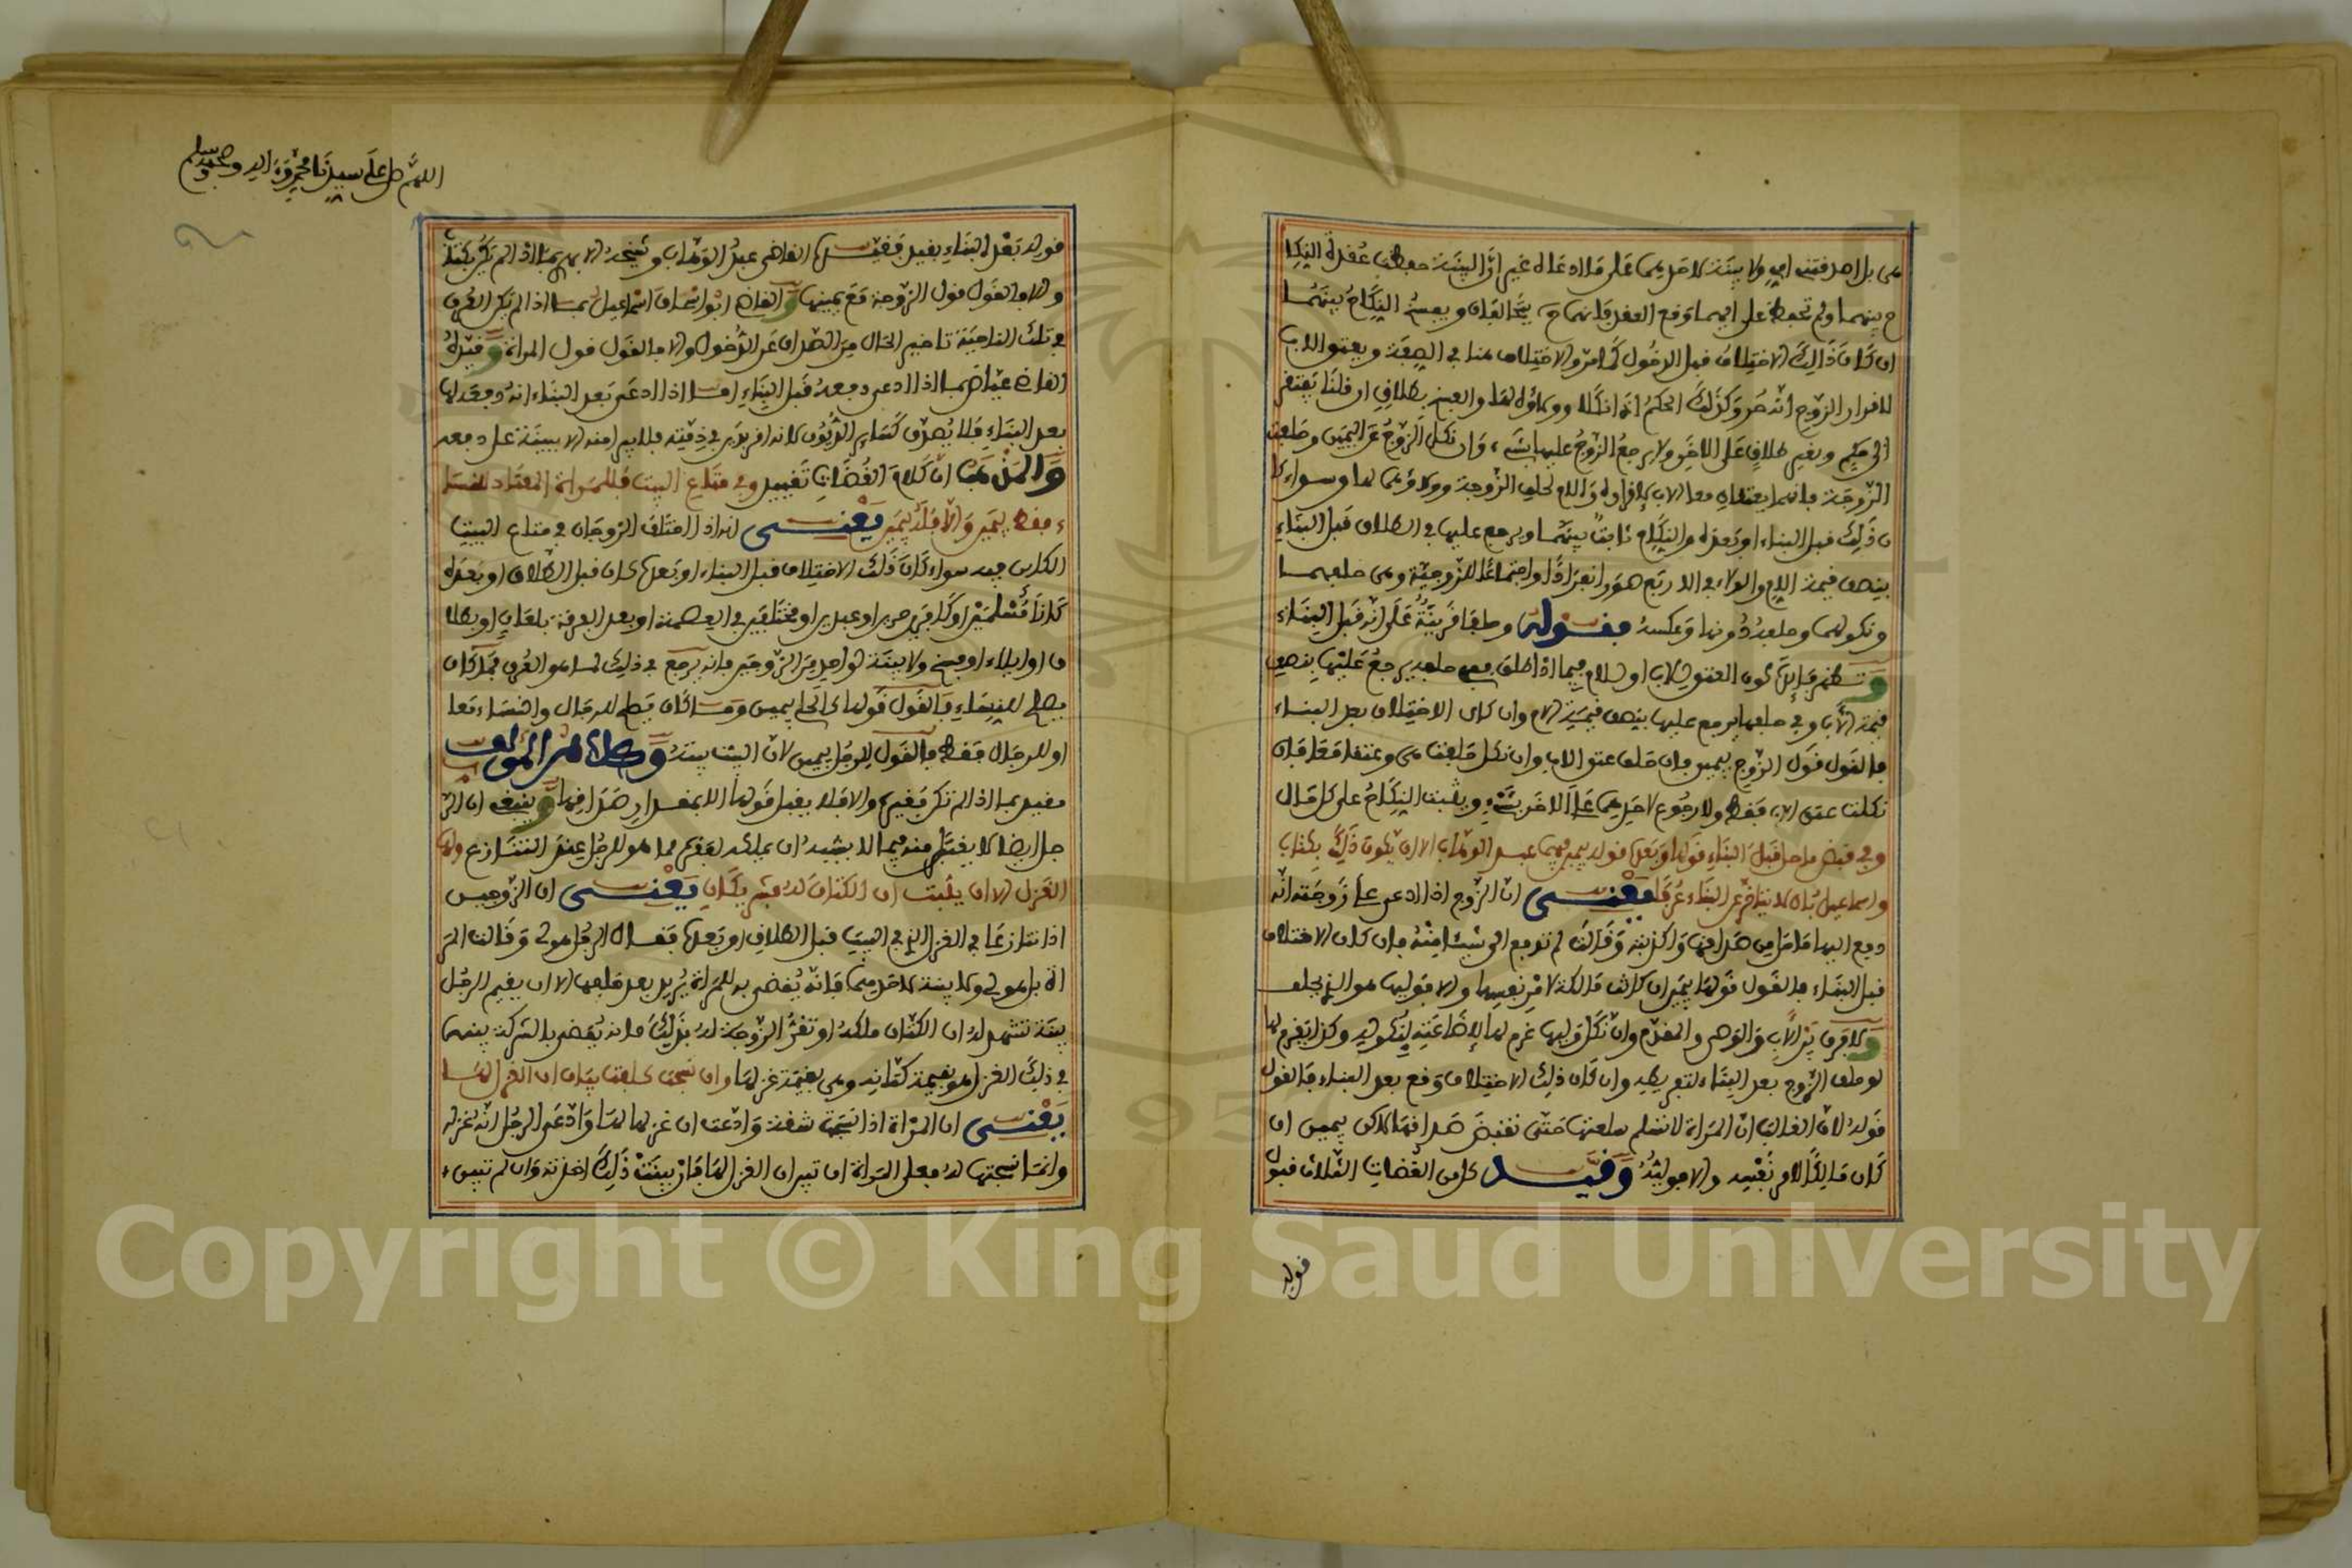 منى بل اصدقتني امي ولا بينة لاحدهما على ما ادعاه غير ان البينة حفظت عقدة النكا
ح بينهما ولم تحفظ على ايهما وقع العقد فانهما يتحالفان ويفسخ النكاح بينهما
ان كان ذالك الاختلاف قبل الدخول كما مر والاختلاف هنا في الصفة ويعتق الاب
لاقرار الزوج انه حر وكذلك الحكم اذا نكلا وولاؤه لها والفسخ بطلاق ان قلنا يفتقر
الى حكم وبغير طلاق على الاخر ولا يرجع الزوج عليها بشيء وان نكل الزوج عن اليمين وحلفت
الزوجة فانهما يعتقان معا الاب لاقراره والام لحلف الزوجة وولاؤهما لها وسواء كا
ن ذلك قبل البناء او بعده والنكاح ثابت بينهما ويرجع عليها في الطلاق قبل البناء
بنصف قيمة الام والولاء في الاربع صور انفرادا واجتماعا للزوجية وهي حلفهما
ونكولهما وحلفه دونها وعكسه فقوله وحلفا قرينة على انه قبل البناء
وتظهر فائدة كون العتق للاب او للام فيما اذا طلق ففي حلفه يرجع عليها بنصف
قيمة الاب وفي حلفها يرجع عليها بنصف قيمة الام وان كان الاختلاف بعد البناء
فالقول قول الزوج بيمين فان حلف عتق الاب وان نكل حلفت هي وعتقا معا فان
نكلت عتق الاب فقط ولا رجوع لاحدهما على الاخر بشيء ويثبت النكاح على كل حال
وفي قبض ما حل فقبل البناء قولها وبعده قوله بيمين فيهما عبد الوهاب الا ان يكون ذلك بكتاب
واسماعيل بان لا يتاخر عن البناء عرفا يعنى ان الزوج اذا ادعى على زوجته انه
دفع اليها ما حل من صداقها واكذبته وقالت لم تدفع الي شيئا منه فان كان الاختلاف
قبل البناء فالقول قولها بيمين ان كانت مالكة لامر نفسها والا فوليها هو الذي يحلف
ولا فرق بين الاب والوصي والمقدم وان نكل وليها غرم لها لاضاعته بنكوله وكذا يغرم لها
لو حلف الزوج بعد البناء لتفريطه وان كان ذلك الاختلاف وقع بعد البناء فالقول
قوله لان الغالب ان المراة لا تسلم سلعتها حتى تقبض صداقها لاكن بيمين ان
كان مالكا لامر نفسه والا فوليه وقيد كل من القضات الثلاث قبول
قوله
اللهم صل على سيدنا محمد وءاله وصحبه وسلم
قوله بعد البناء بقيد فقيده القاضي عبد الوهاب وشيخه الابهري بما اذا لم يكن بكتاب
والا فالقول قول الزوجة مع يمينها والقاضي ابو اسحاق اسماعيل بما اذا لم يكن العرف
في تلك الناحية تاخير الحال من الصداق عن الدخول والا فالقول قول المراة وقيده
القاضي عياض بما اذا ادعى دفعه قبل البناء اما اذا ادعى بعد البناء انه دفعه لها
بعد البناء فلا يصدق كسائر الديون لانه اقر بدين في ذمته فلا يبرا منه الا ببينة على دفعه
والمذهب ان كلام القضات تقييد وفي متاع البيت فللمراة المعتاد للنسا
ء فقط بيمين والا فله بيمين يعنى انه اذا اختلف الزوجان في متاع البيت
الكائن فيه سواء كان ذلك الاختلاف قبل البناء او بعده كان قبل الطلاق او بعده
كانا مسلمين او كافرين حرين او عبدين او مختلفين في العصمة او بعد الفرقة بلعان او بطلا
ق او ايلاء او فسخ ولا بينة لواحد من الزوجين فانه يرجع في ذلك لما هو العرف فما كان
يصلح للنساء فالقول قولها لاكن بيمين وما كان يصلح للرجال والنساء معا
او للرجال فقط فالقول للرجل بيمين لان البيت بيته وكلام المولف
مقيد بما اذا لم تكن فقيرة والا فلا يقبل قولها الا بمقدار صداقها وينبغي ان الر
جل ايضا لا يقبل منه فيما لا يشبه ان يملكه لفقره مما هو للرجل عند التنازع ولها
الغزل الا ان يثبت ان الكتان له فشريكان يعنى ان الزوجين
اذا تنازعا في الغزل الذي في البيت قبل الطلاق او بعده فقال الرجل هو لي وقالت المر
اة بل هو لي ولا بينة لاحدهما فانه يقضى به للمراة يريد بعد حلفها الا ان يقيم الرجل
بينة تشهد له ان الكتان ملكه او تقر الزوجة له بذلك فانه يقضى بالشركة بينهما
في ذلك الغزل هو بقيمة كتانه وهي بقيمة غزلها وان نسجت كلفت بيان ان الغزل لها
يعنى ان المراة اذا نسجت شقة وادعت ان غزلها لها وادعى الرجل انه غزله
وانما نسجتها له فعلى المراة ان تبين ان الغزل لها فان بينت ذلك اخذته وان لم تبين
Copyright © King Saud University